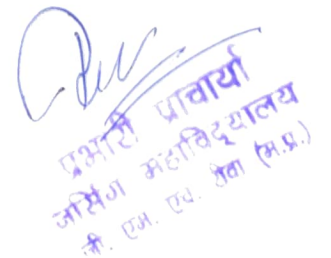 प्रभारी प्राचार्या
नर्सिंग महाविद्यालय
जी. एम. एच. रीवा (म.प्र.)